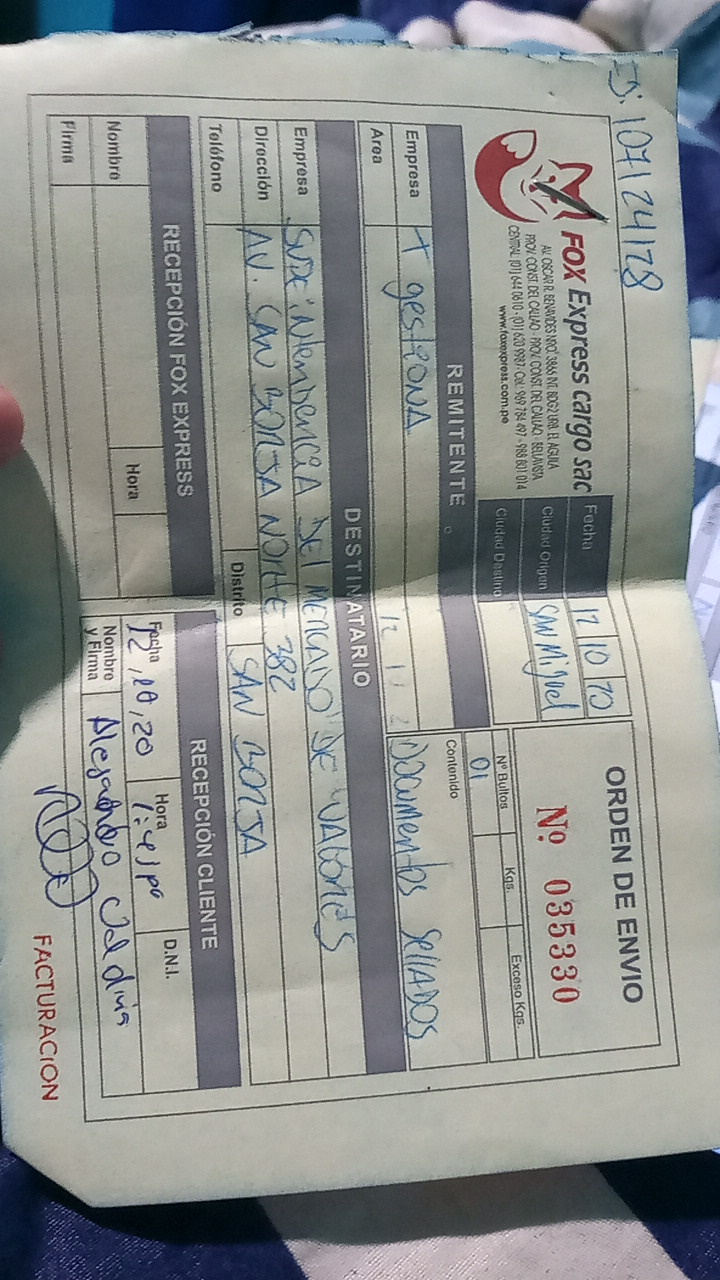 107124128
FOX Express cargo sac
AV. OSCAR R. BENAVIDES NRO. 3866 INT. BDG2 URB. EL AGUILA
PROV. CONST. DEL CALLAO - PROV. CONST. DEL CALLAO - BELLAVISTA
CENTRAL (01) 644 0610 - (01) 620 9987 - Cel.: 969 784 497 - 988 801 014
www.foxexpress.com.pe
Fecha 12 10 20
Ciudad Origen SAN Miguel
Ciudad Destino
ORDEN DE ENVIO
Nº 035330
Nº Bultos Kgs. Exceso Kgs.
01
REMITENTE
Contenido
Empresa + gestiona
Documentos sellados
Area
DESTINATARIO
Empresa Superintendencia DEl MERCADO DE VALORES
Dirección AV. SAN BORJA NORTE 382
Teléfono Distrito SAN BORJA
RECEPCIÓN FOX EXPRESS
RECEPCIÓN CLIENTE
Nombre Hora
Fecha 12,10,20 Hora 1:41 pm D.N.I.
Firma
Nombre y Firma Alejandro
FACTURACION